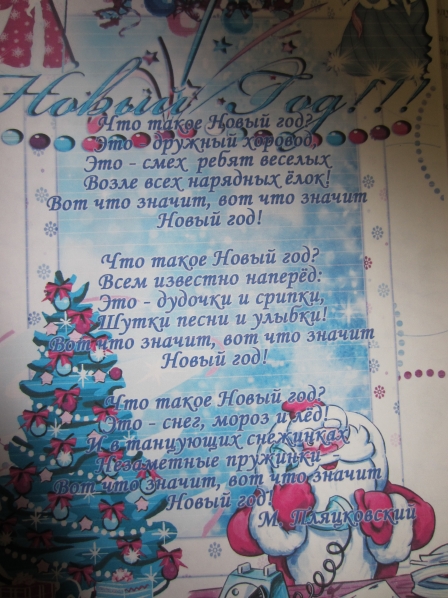 Новый Год!!!
Что такое Новый год?
Это - дружный хоровод,
Это - смех ребят веселых
Возле всех нарядных ёлок!
Вот что значит, вот что значит
Новый год!
Что такое Новый год?
Всем известно наперёд:
Это - дудочки и срипки,
Шутки песни и улыбки!
Вот что значит, вот что значит
Новый год!
Что такое Новый год?
Это - снег, мороз и лёд!
И в танцующих снежинках
Незаметные пружинки -
Вот что значит, вот что значит
Новый год!
М. Пляцковский